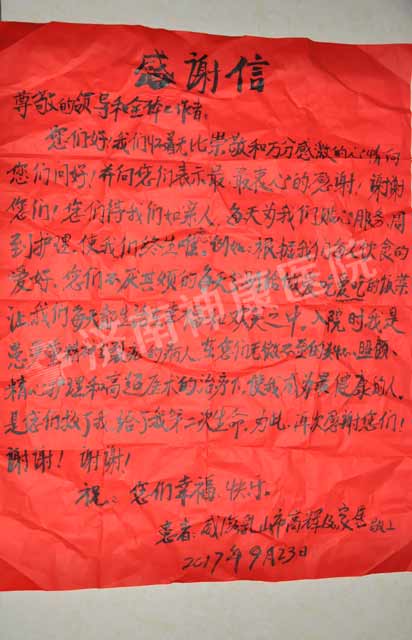 感谢信
尊敬的领导和全体工作者:
您们好!我们怀着无比崇敬和万分感激的心情向
您们问好!并向您们表示最最衷心的感谢!谢谢
您们!您们待我们如亲人,每天为我们贴心服务,周
到护理,使我们终生难。例如:根据我们每天饮食的
爱好,您们不厌其烦的每天给做爱吃的饭菜
让我们每天都生活在幸福和欢笑之中。入院时我是
患严重精神的病人,在您们无微不至的关怀、照顾、
精心护理和高超医术的治疗下,使我成为最健康的人。
是您们救了我,给了我第二次生命,为此,再次感谢您们!
谢谢!谢谢!
祝:您们幸福、快乐。
患者:威海乳山市高辉及家属敬上
2017年9月23日
济南神康医院